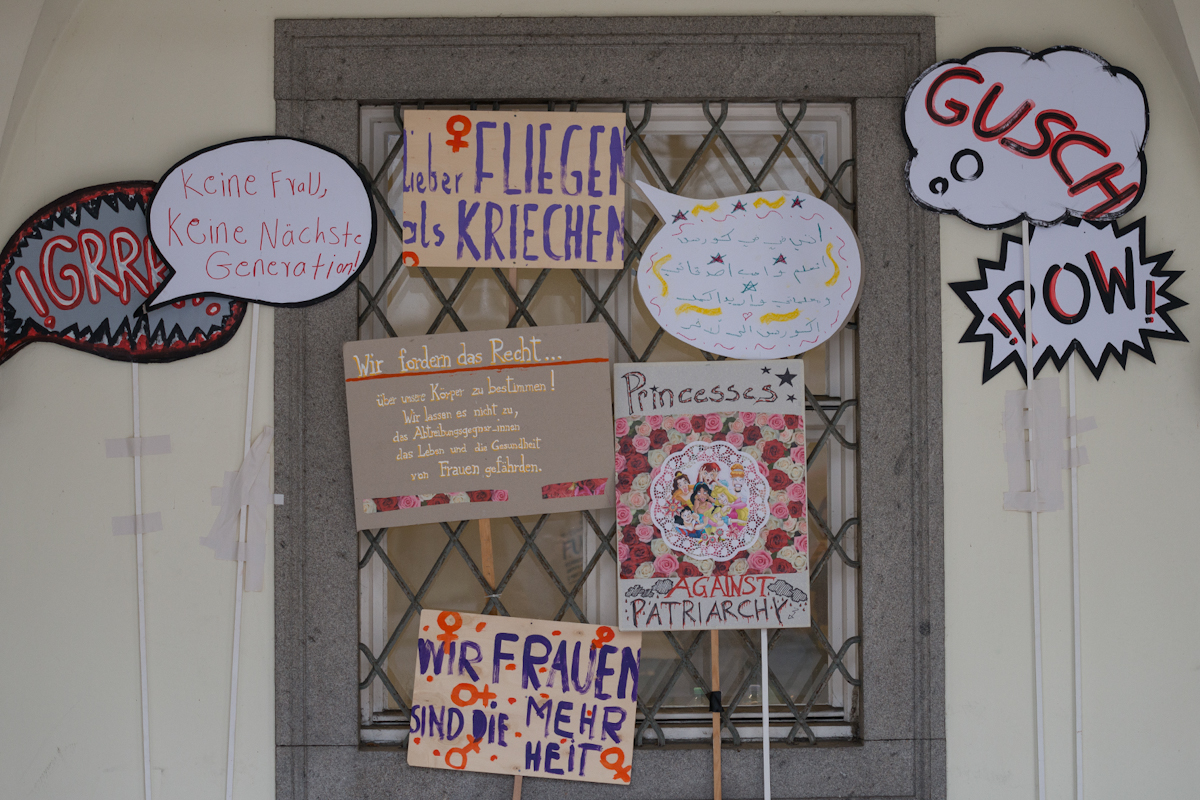 !GRRR
Keine Frau,
Keine Nächste
Generation!
Lieber FLIEGEN
als KRIECHEN
GUSCH
!POW!
Wir fordern das Recht...
über unsere Körper zu bestimmen!
Wir lassen es nicht zu,
das Abtreibungsgegner_innen
das Leben und die Gesundheit
von Frauen gefährden.
Princesses
AGAINST
PATRIARCHY
WIR FRAUEN
SIND DIE MEHR
HEIT